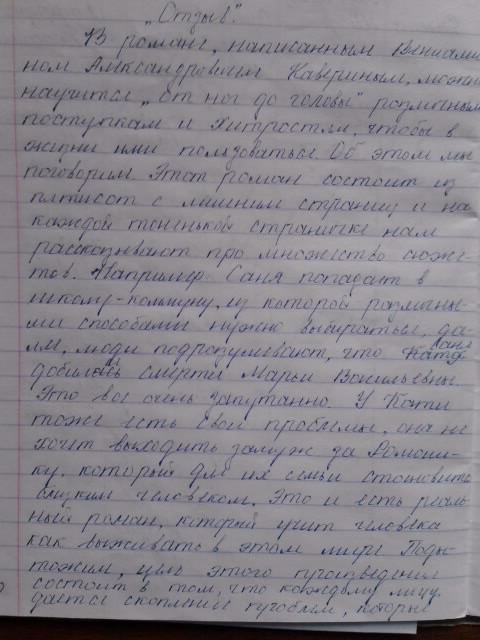 „Отзыв".
В романе, написанным Вениами-
ном Александровичем Кавериным, можно
научится „от ног до головы" различным
поступкам и хитростям, чтобы в
жизни ими пользоваться. Об этом мы
поговорим Этот роман состоит из
пятисот с лишним страниц и на
каждой тоненькой страничке нам
рассказывают про множество сюже-
тов. Например: Саня попадает в
школу-коммуну, из которой различны-
ми способами нужно выбираться, да-
ли, люди подразумевают, что Саня
добилась смерти Марьи Васильевны.
Это все очень запутанно. У Кати
тоже есть свои проблемы, она не
хочет выходить замуж за Ромаш-
ку, который для их семьи становить
близким человеком. Это и есть реаль-
ный роман, который учит человека
как выживать в этом мире Поды-
тожим, цель этого произведения
состоит в том, что каждому лицу
дается скопление проблем, которые